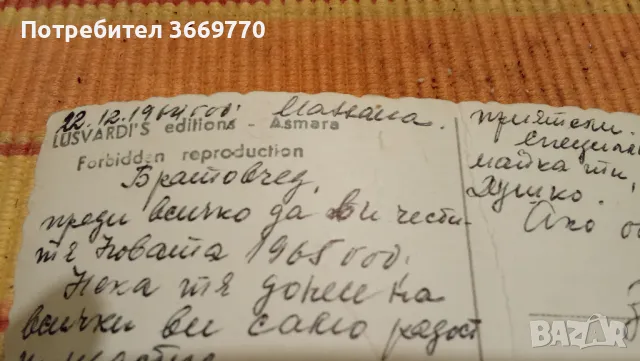 Потребител 3669770
22.12.1964 год. Массаца.
LUSVARDI'S editions - Asmara
Forbidden reproduction
Братовчед,
преди всичко да Ви чести-
тя Новата 1965 год.
Нека тя донесе на
всички ви само радост
и щастие
приятели.
специал
майка ти,
Душко.
Ако
bazar